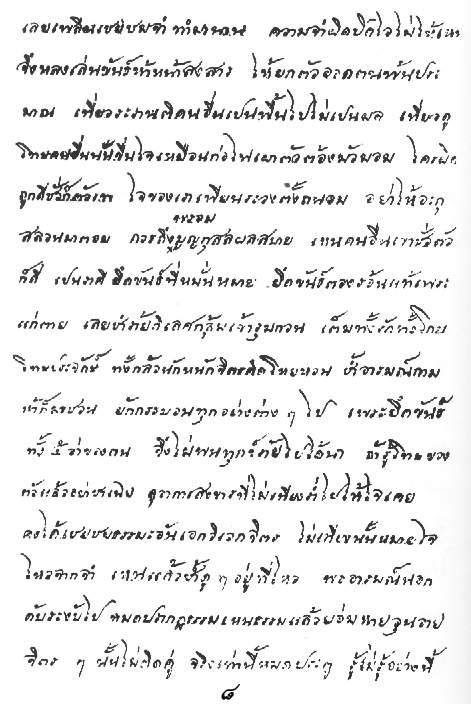 เลยเพลินเชยชมจำ ทำมานาน ความจำผิดปิดไว้ไม่ให้เหน
จึงหลงเล่นขันธ์ห้าหน้าสงสาร ให้ยกตัวอวดตนพ้นประ
มาณ เที่ยวระรานติคนอื่นเปนพื้นไปไม่เปนผล เที่ยวดู
โทษคนอื่นนั้นขื่นใจเหมือนก่อไฟเผาตัวต้องมัวมอม ใครผิด
ถูกดีชั่วก็ตัวเขา ใจของเราเพียนระวงตั้งถนอม อย่าให้อะกุ
สลวนมาตอม ควรถึงพร้อมบุญกุสลผลสบาย เหนคนอื่นเขาชั่วตัว
ก็ดี เปนราคียึดขันธ์ที่มั่นหมาย ยึดขันธ์ตองรอ้นแท้เพราะ
แก่ตาย เลยซ้ำภัยกิเลศกลุ้มเข้ารุมกวน เต็มทั้งรักทั้งโกรธ
โทษประจักษ์ ทั้งกลัวนักหนักจิตรคิดโหยหวน ซ้ำอารมณ์กาม
ห้าก็มาชวน ยกกระบวนทุกอย่างต่าง ๆ ไป เพราะยึดขันธ์
ทั้ง ๕ ว่าของตน จึงไม่พนทุกข์ภัยไปได้นา ถ้ารู้โทษของ
ตัวแล้วอย่าชาเฉย ดูอาการสังขารที่ไม่เที่ยงร่ำไปให้ใจเคย
คงได้เชยชมธรรมะอันเอกวิเวกจิตร ไม่เที่ยงนั้นหมายใจ
ไหวจากจำ เหนแล้วซ้ำดู ๆ อยู่ที่ไหว พออารมณ์นอก
ดับระงับไป หมดปรากฏธรรมเหนธรรมแล้วย่อมหายวุ่นวาย
จิตร ๆ นั้นไม่ติดคู่ จริงเท่านี้หมดประตู รู้ไม่รู้อย่างนี้
๘